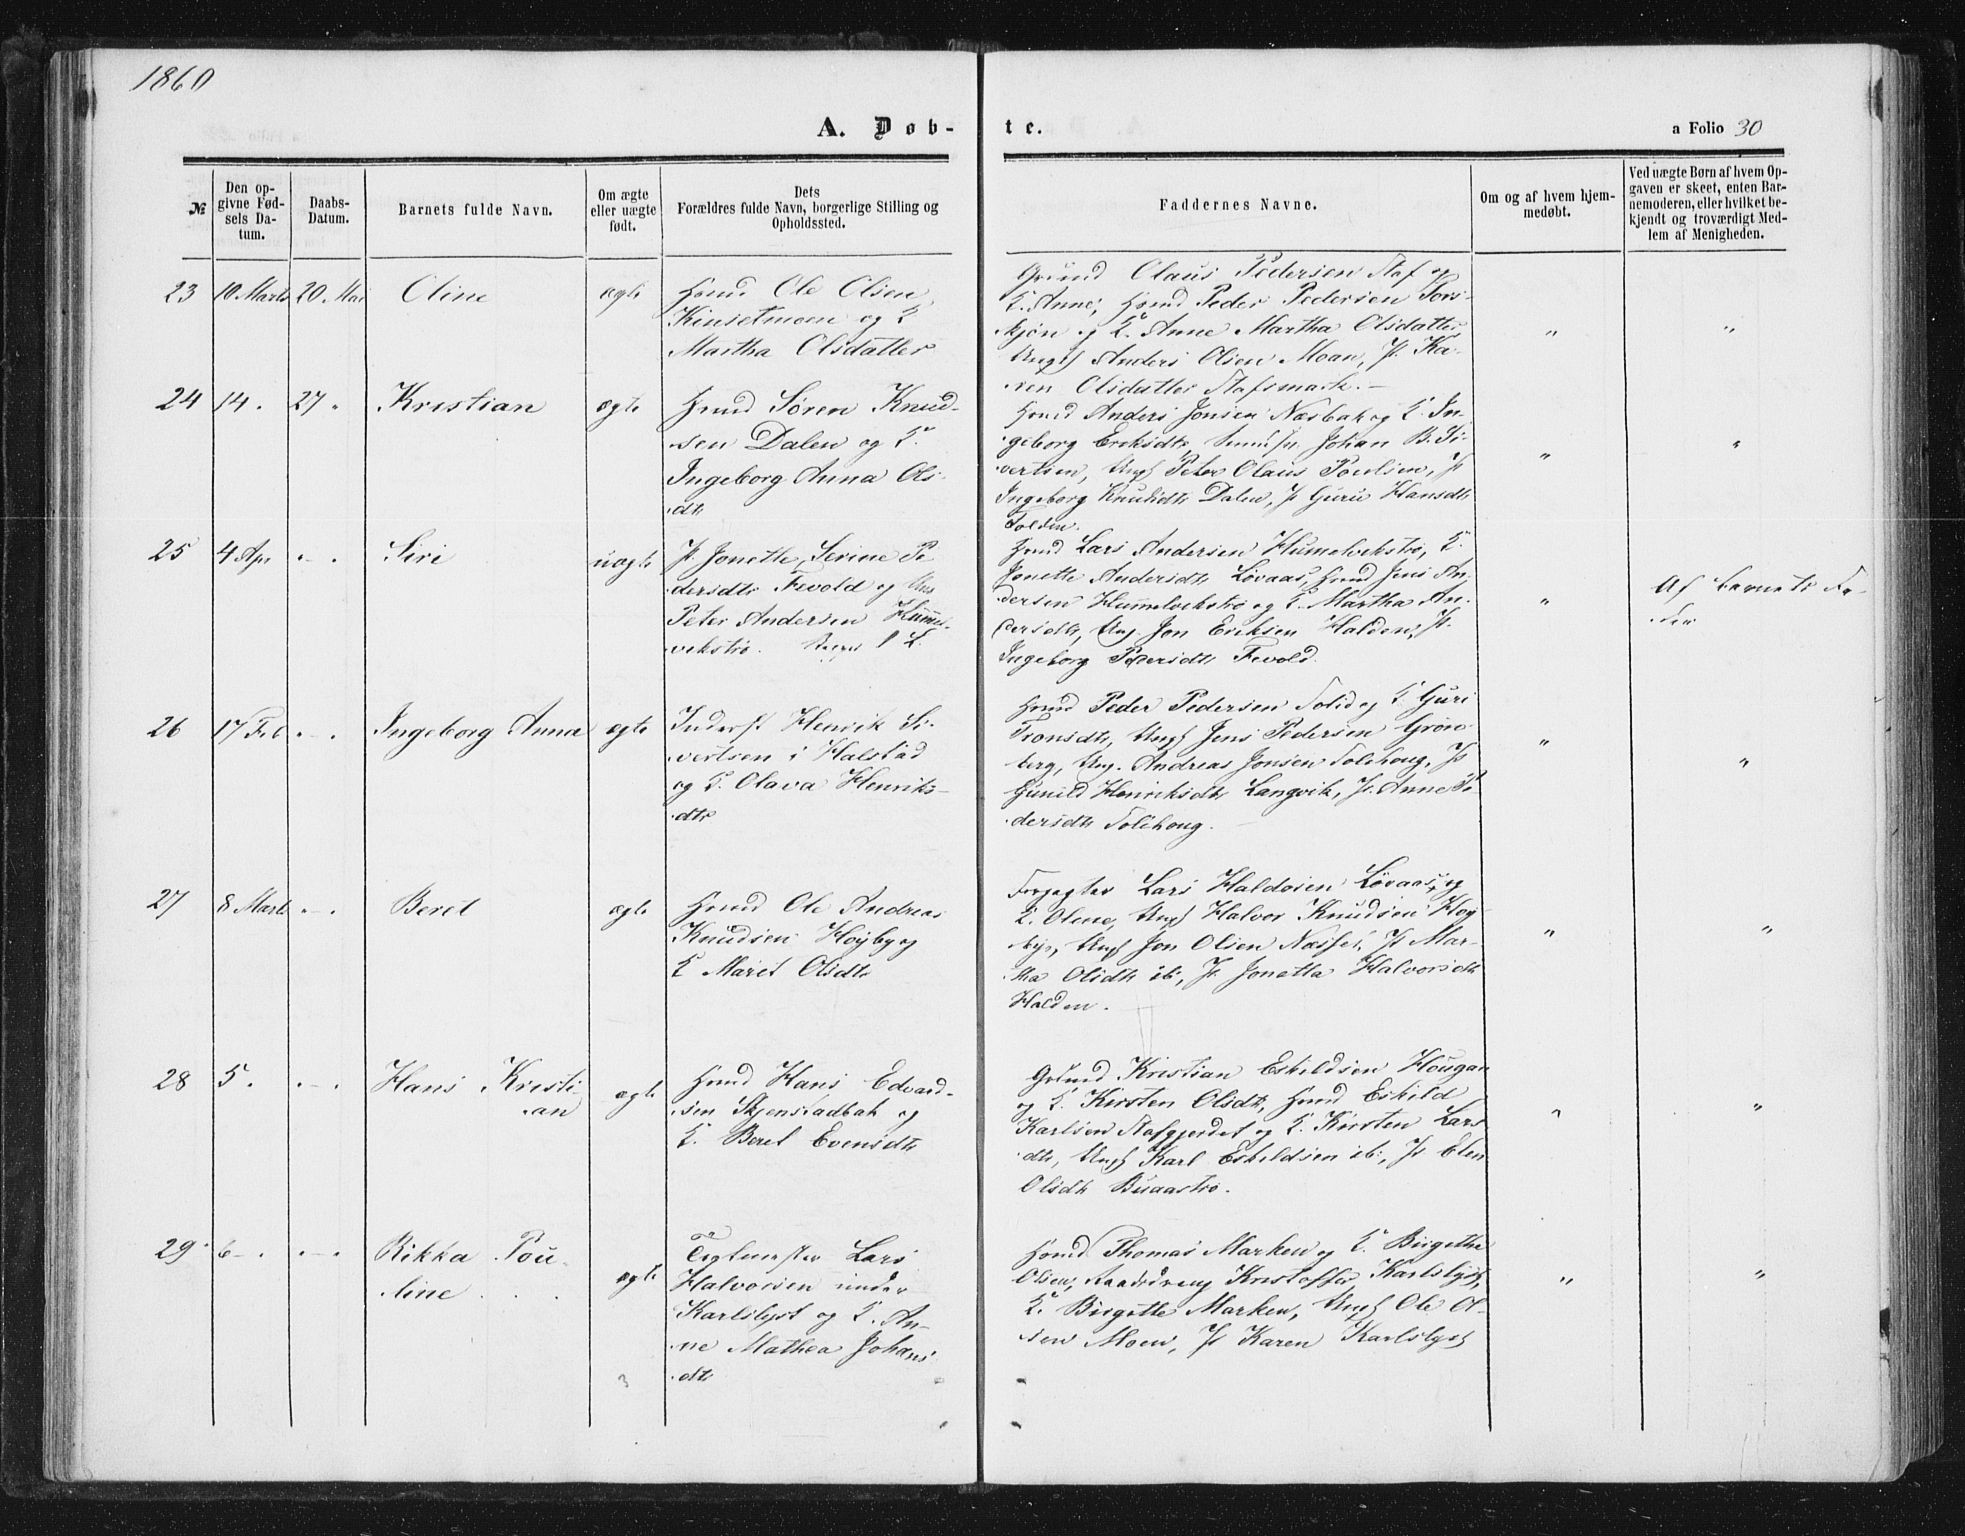 1860
A. Døb-
te.
a Folio 30
№
Den op-
givne Fød-
sels Da-
tum.
Daabs-
Datum.
Barnets fulde Navn.
Om ægte
eller uægte
født.
Dets
Forældres fulde Navn, borgerlige Stilling og
Opholdssted.
Faddernes Navne.
Om og af hvem hjem-
medøbt.
Ved uægte Børn af hvem Op-
gaven er skeet, enten Bar-
nemoderen, eller hvilket be-
kjendt og troværdigt Med-
lem af Menigheden.
23 10 Marts 20 Mai Oline ægte
Huusmd Ole Olsen
Kinsetmoen og K
Martha Olsdatter
Olaus Pedersen Staf og
K. Anne, Huusmd Peder Pedersen
og K. Anne Martha Olsdatter,
Ungk Anders Olsen Moan, P. Ka-
ren Olsdatter Stafsmark. -
" "
24 14. 27 " Kristian ægte
Huusmd Søren Knud-
sen Dalen og K.
Ingeborg Anna Ols-
dtr
Huusmd Anders Jonsen Næsbak og K. In-
geborg Eriksdtr, Johan B. Si-
vertsen, Ungk Peter Olaus Poulsen, P
Ingeborg Knudsdtr Dalen, P Guru Hansdtr
Folden.
" "
25 4 Apr " - " Siri uægte
P. Jonette Serine Pe
dersdtr Fevold og Ung
Peter Andersen Hummel-
vikstrø.
Huusmd Lars Andersen Humelvikstrø, K.
Jonette Andersdtr Løvaas, Huusmd Jens An-
dersen Hummelvikstrø og K. Martha An-
dersdtr, Ung Jon Eriksen Halden, P.
Ingeborg Pedersdtr Fevold.
"
Af barnets Fa-
der
26 17 Feb " - " Ingeborg Anna ægte
Inderst Henrik Si-
vertsen i Halstad
og K. Olava Henriks-
dtr
Huusmd Peder Pedersen Solid og K Guri
Tronsdtr, Ungk Jens Pedersen Grøn-
berg, Ung. Andreas Jonsen Solihoug, P
Gunild Henriksdtr Langvik, P. Anne Pe
dersdtr Solihoug.
" "
27 8 Marts " - " Beret ægte
Huusmd Ole Andreas
Knudsen Høyby og
K Maret Olsdtr
Lars Haldosen Løvaas, og
K. Oline, Ungk Halvor Knudsen Høy-
bye, Ungk Jon Olsen Næsset, P Mar-
tha Olsdtr ib:, P. Jonetta Halvorsdtr
Halden.
" "
28 5. " - " Hans Kristi-
an ægte
Huusmd Hans Edvard-
sen Skjenstadbak og
K. Beret Evensdtr
Kristian Eskildsen Hougan
og K. Kirsten Olsdtr, Huusmd Eskild
Karlsen Stafgjerdet og K. Kirsten Lars
dtr, Ungk Karl Eskildsen ib:, P Elen
Olsdtr Buaastrø.
" "
29. 6 - . " - " Rikka Pou-
line ægte
Teglmester Lars
Halvorsen under
Karlslyst og K. An-
ne Mathea Johans
dtr
3
Huusmd Thomas Marken og K. Birgitha
Olsen, Kristoffer Karlslyst,
K. Birgitte Marken, Ungk Ole Ol-
sen Moen, P Karen Karlslyst
" "